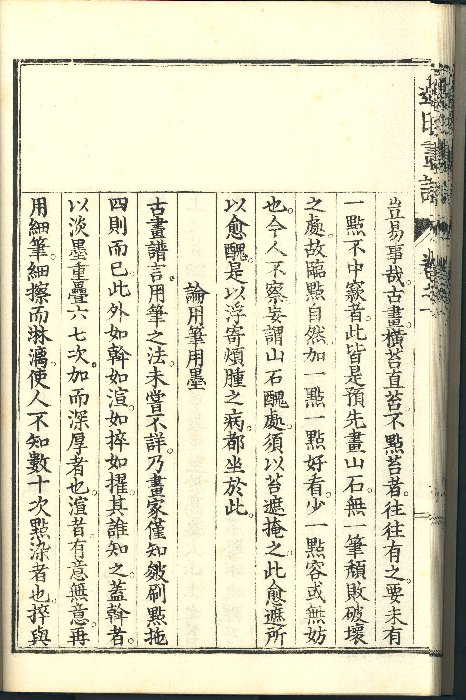 豈易事哉。古畫橫苔直苔不點苔者。往往有之。要未有
一點不中窾者。此皆是預先畫山石無一筆頹敗破壞
之處。故臨點自然加一點一點好看。少一點容或無妨
也。今人不察妄謂山石醜處。須以苔遮掩之。此愈遮所
以愈醜。是以浮寄煩腫之病。都坐於此。
論用筆用墨
古畫譜言。用筆之法未嘗不詳。乃畫家僅知皴刷點拖
四則而已。此外如斡如渲。如捽如擢。其誰知之。蓋斡者。
以淡墨重疊六七次。加而深厚者也。渲者。有意無意。再
用細筆細擦而淋漓。使人不知數十次點染者也。捽與